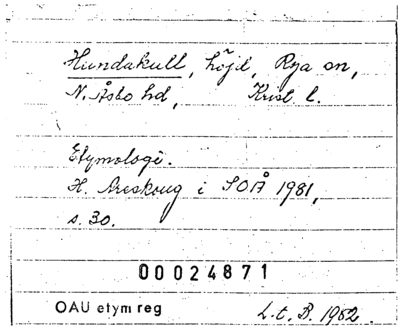 Hundakull, höjd, Rya sn,
N. Åsbo hd, Krist. l.
Etymologi.
H. Areskoug i SOÅ 1981,
s. 30.
00024871
OAU etym reg
L.t. B. 1982.